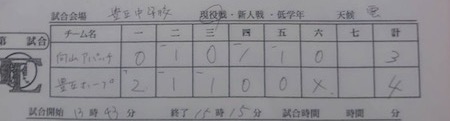 試合会場 豊丘中学校 現役戦・新人戦・低学年 天候
第 試合
チーム名 一 二 三 四 五 六 七 計
向山アパッチ 0 1 0 1 1 0 3
豊丘ホープ 2 1 1 0 0 X 4
試合開始 13時43分 終了15時15分 試合時間 時間 分